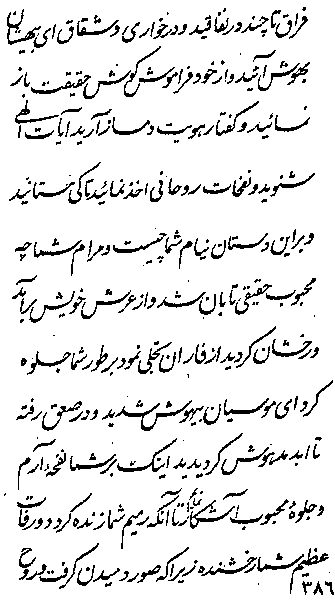 فراق تا چند در نفاقید و در خواری و شقاق ای بیهشان
بهوش آئید و از خود فراموش گوش حقیقت باز
نمائید و گفتار هویت دمساز آرید آیات الهی
شنوید و نفحات روحانی اخذ نمائید تا کی ستائید
و براین دستان نیام شما چیست و مرام شما چه
محبوب حقیقی تابان شد و از عرش خویش برآمد
و رخشان گردید از فاران تجلی نمود بر طور شما جلوه
کرد ای موسیان بیهوش شدید و در صعق رفته
تا ابد مدهوش گردیدید اینک بر شما نفحهٔ آرم
و جلوهٔ محبوب آشکار تا آنکه رمیم شما زنده گردد و رفات
عظیم شما رخشنده زیرا که صور دمیدن گرفت و روح
۳۸۶